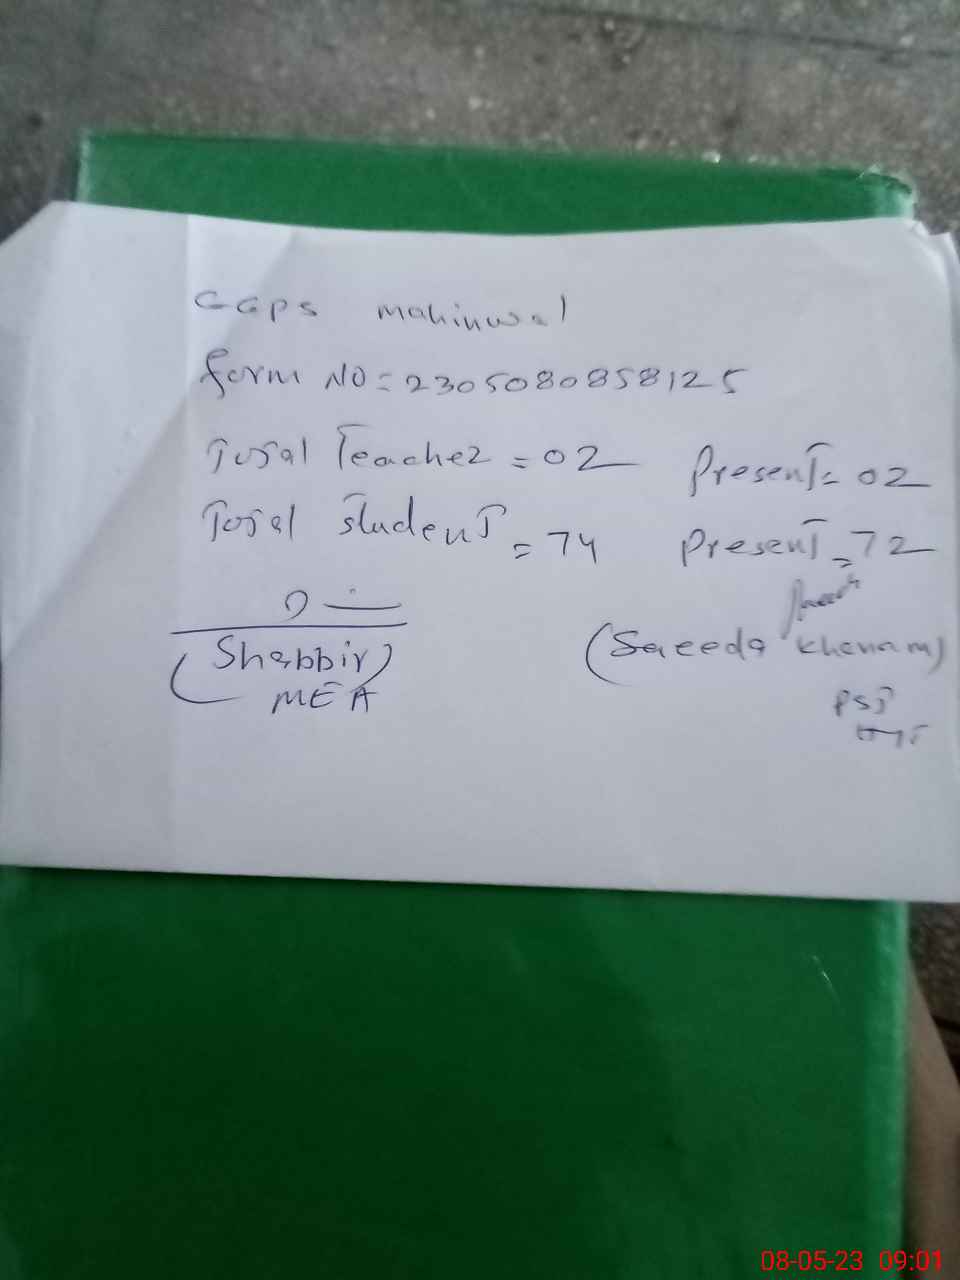 GGPS mahinwal
form NO = 2305080858125
Total Teacher = 02 Present = 02
Total student = 74 Present = 72
(Shabbir) (Saeeda Khanam)
MEA PST
08-05-23 09:01